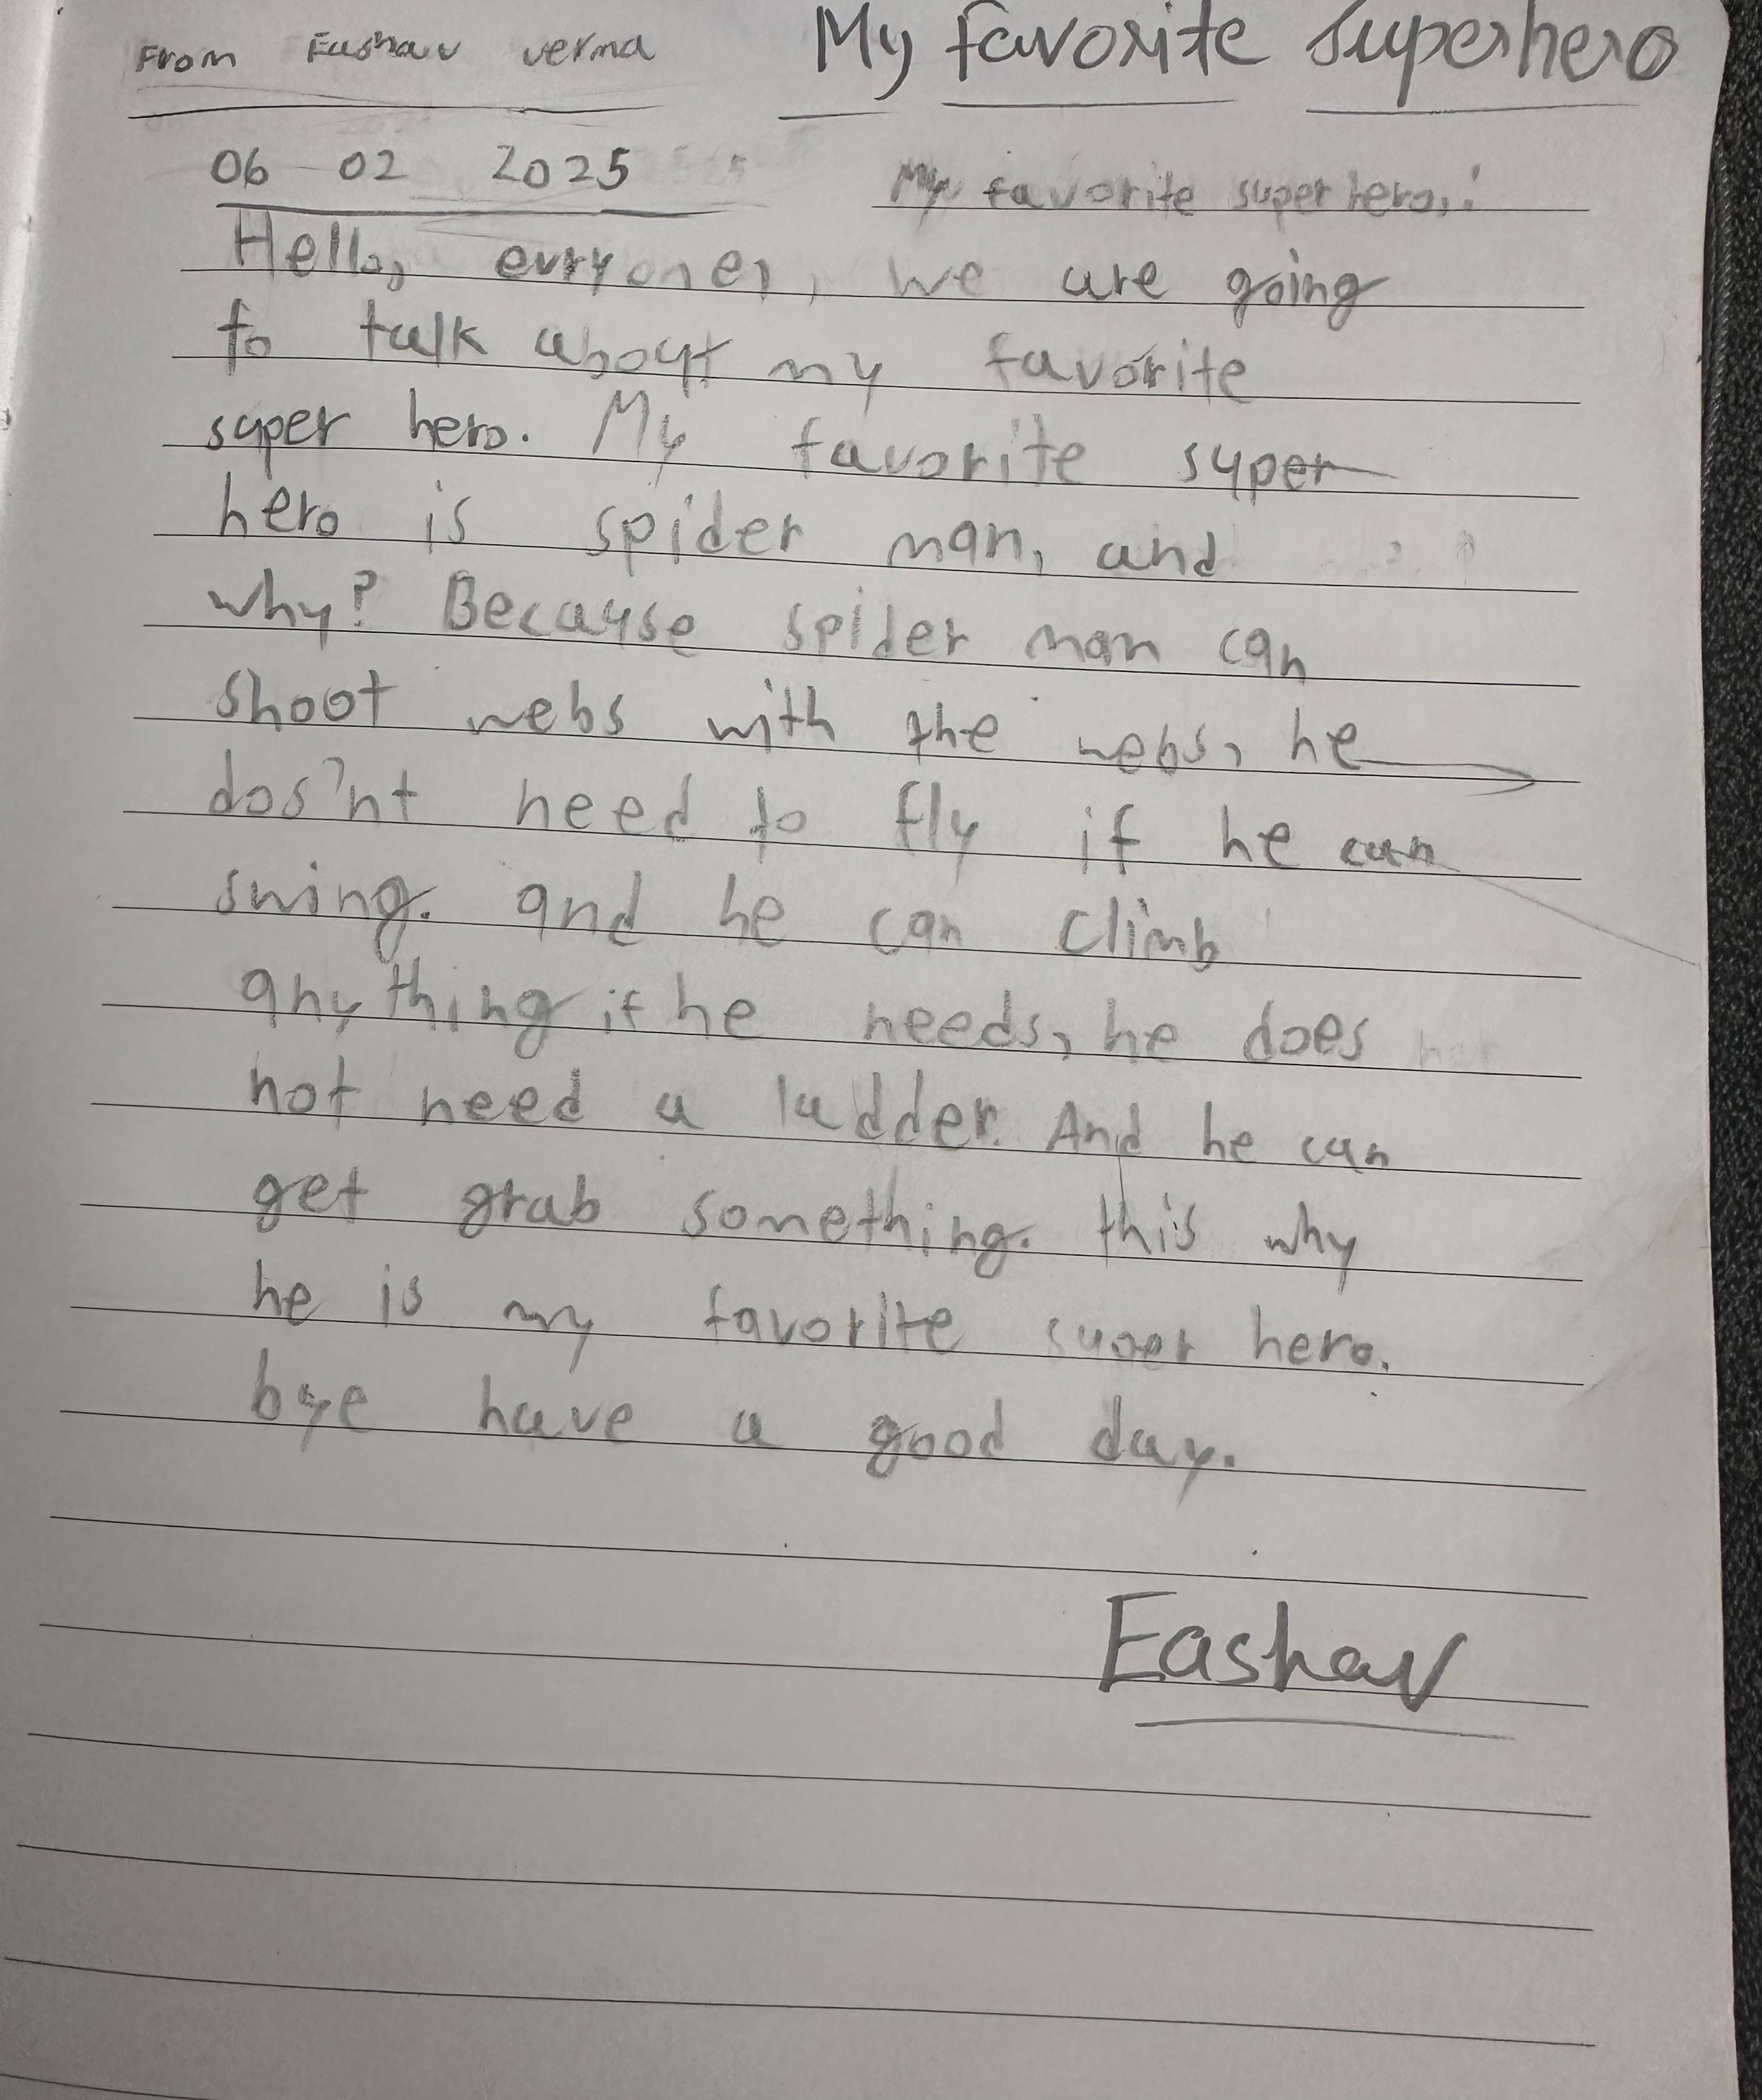 From Eashav verma
My favorite superhero
06 02 2025
My favorite super hero,!
Hello, evryone, we are going
to talk about my favorite
super hero. My favorite super
hero is spider man, and
why? Because spider man can
shoot webs with the webs, he
dos'nt need to fly if he can
swing. and he can climb
any thing if he needs, he does
not need a ladder. And he can
get grab something. this why
he is my favorite super hero.
bye have a good day.
Eashav